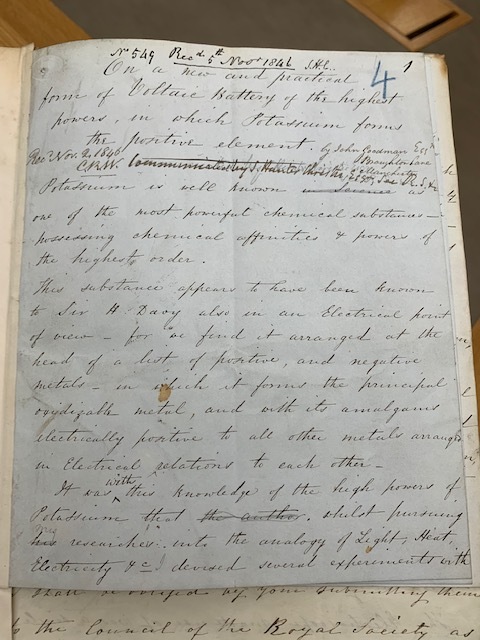 No 549 Recd 5th Novr 1846 S.H.C. 1
On a new and practical 4
form of Voltaic Battery of the highest
powers, in which Potassium forms
the positive element. by John Goodman Esqr
Recd Nov. 2, 1846 Broughton Lane
C.R.W. Communicated by S. Hunter Christie, Esq. Sec R.S. &c
Potassium is well known in Science as
one of the most powerful chemical substances –
possessing chemical affinities & powers of
the highest order.
This substance appears to have been known
to Sir H. Davy also in an Electrical point
of view – for we find it arranged at the
head of a list of positive, and negative
metals – in which it forms the principal
oxidizable metal, and with its amalgams
electrically positive to all other metals arranged
in Electrical relations to each other –
It was with this knowledge of the high powers of
Potassium that the author. whilst pursuing
his researches into the analogy of Light, Heat
Electricity &c I devised several experiments with
by your submitting them
to the Council of the Royal Society as